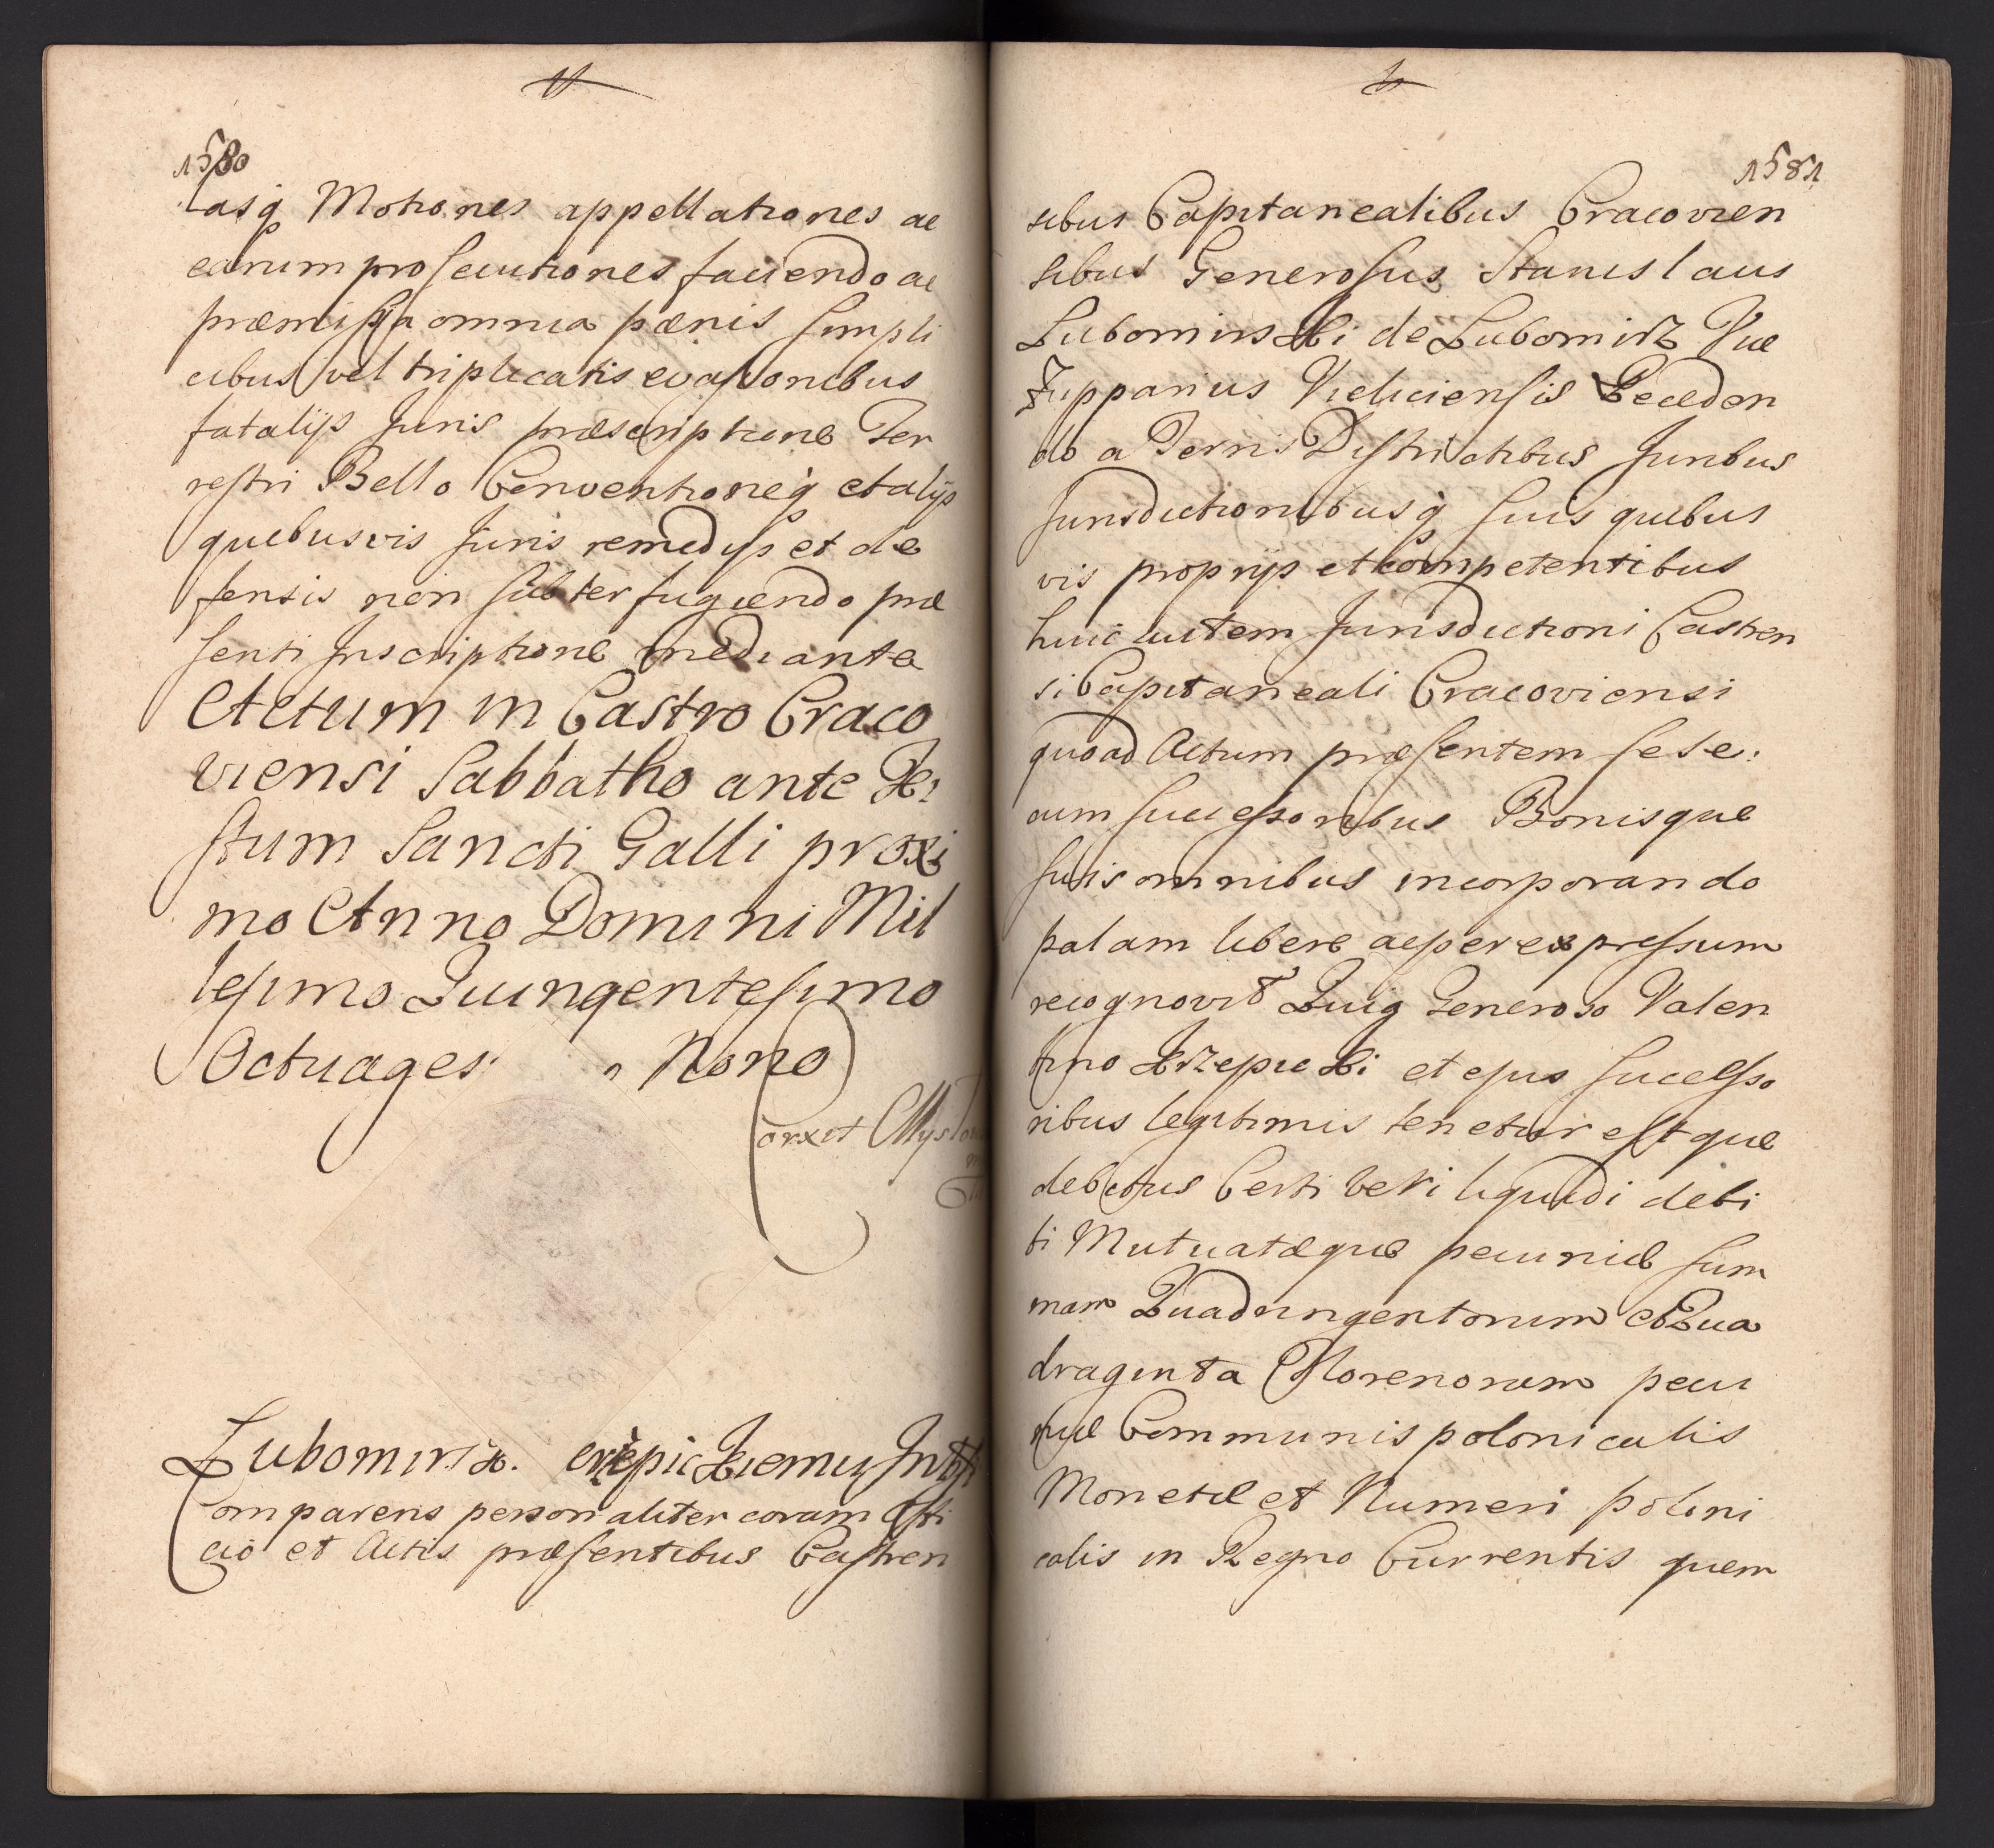 1580
lasq Motiones appellationes ac
earum prosecutiones faciendo ac
præmissa omnia pænis simpli
cibus vel triplicatis evasionibus
fatalijs Juris præscriptione Ter
restri Bello Conventioneq et alijs
quibusvis Juris remedijs et de
fensis non subterfugiendo præ
senti Inscriptione mediante
Actum in Castro Craco
viensi Sabbatho ante Fe
stum Sancti Galli proxi
mo Anno Domini Mil
lesimo Quingentesimo
Octuages: Nono
Corxit
Lubomirsk. Inbt
Comparens personaliter coram Offi
cio et Actis præsentibus Castren
1581
sibus Capitanealibus Cracovien
sibus Generosus Stanislaus
Lubominski de Lubomirz Vice
Zupparius Vieliciensis Receden
do a Terris Districtibus Juribus
Jurisdictionibusq suis quibus
vis proprijs et competentibus
huic autem Jurisdictioni Castren
si Capitaneali Cracoviensi
quoad Actum præsentem sese
cum successoribus Bonisque
suis omnibus incorporando
palam libere ac per expressum
recognovit Quiq Generoso Valen
tino Krzepicki et ejus successo
ribus legitimis tenetur estque
debitus Certi veri liquidi debi
ti Mutuatæque pecuniæ sum
mam Quadringentorum et Qua
draginta Florenorum pecu
niæ Communis polonicalis
Monetæ et Numeri poloni
calis in Regno Currentis quem